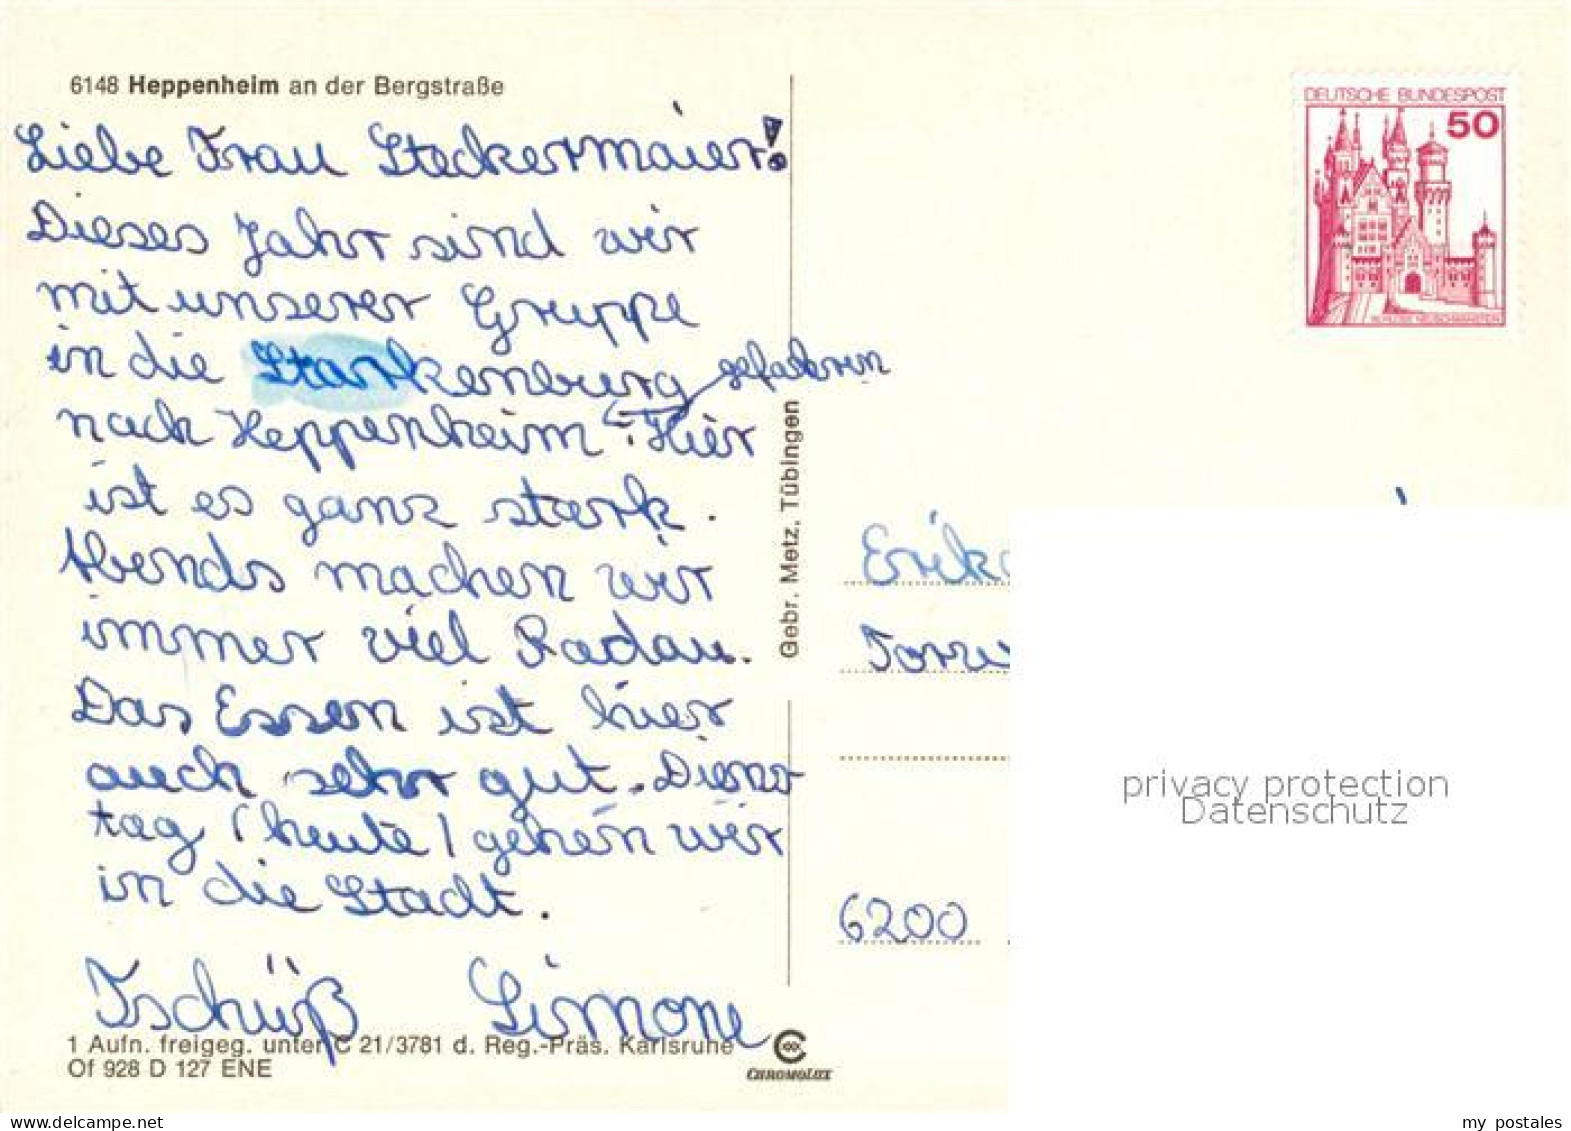 6148 Heppenheim an der Bergstraße
Liebe Frau Steckermaier!
Dieses Jahr sind wir
mit unserer Gruppe
in die Starkenburg gefahren
nach Heppenheim. Hier
ist es ganz stark.
Abends machen wir
immer viel Radau.
Das Essen ist hier
auch sehr gut. Diens
tag (heute) gehen wir
in die Stadt.
Tschüß Simone
1 Aufn. freigeg. unter C 21/3781 d. Reg.-Präs. Karlsruhe
Of 928 D 127 ENE
CHROMOLUX
Gebr. Metz, Tübingen
DEUTSCHE BUNDESPOST
50
SCHLOSS NEUSCHWANSTEIN
Erika
6200
privacy protection
Datenschutz
my postales